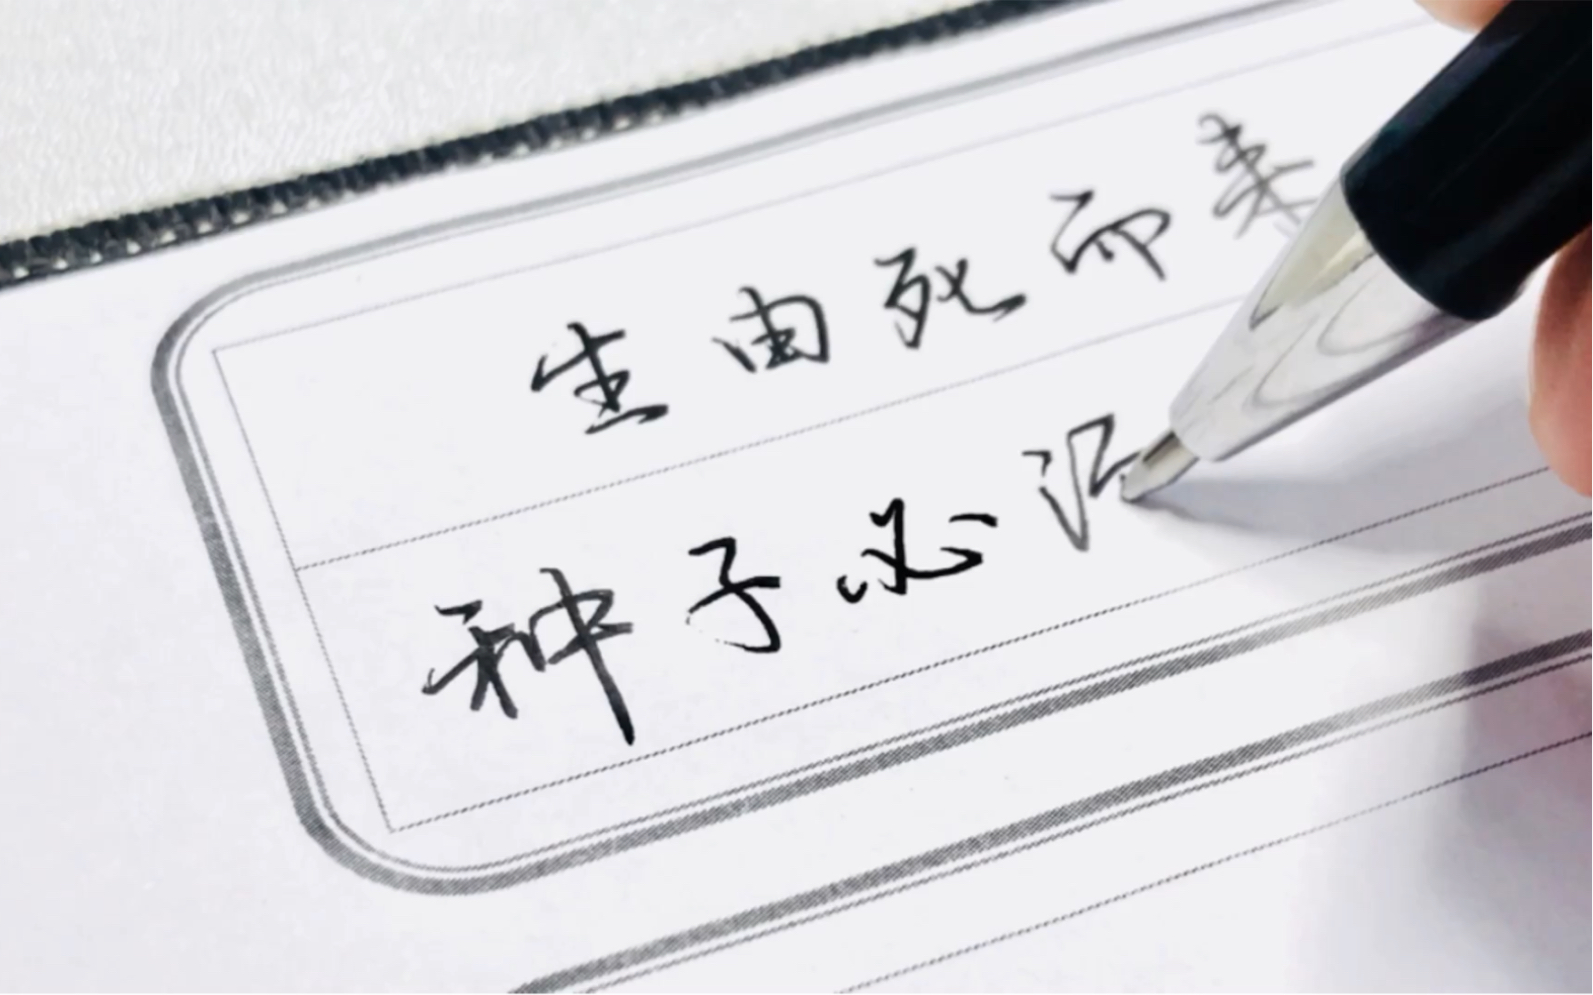 生由死而来
种子必